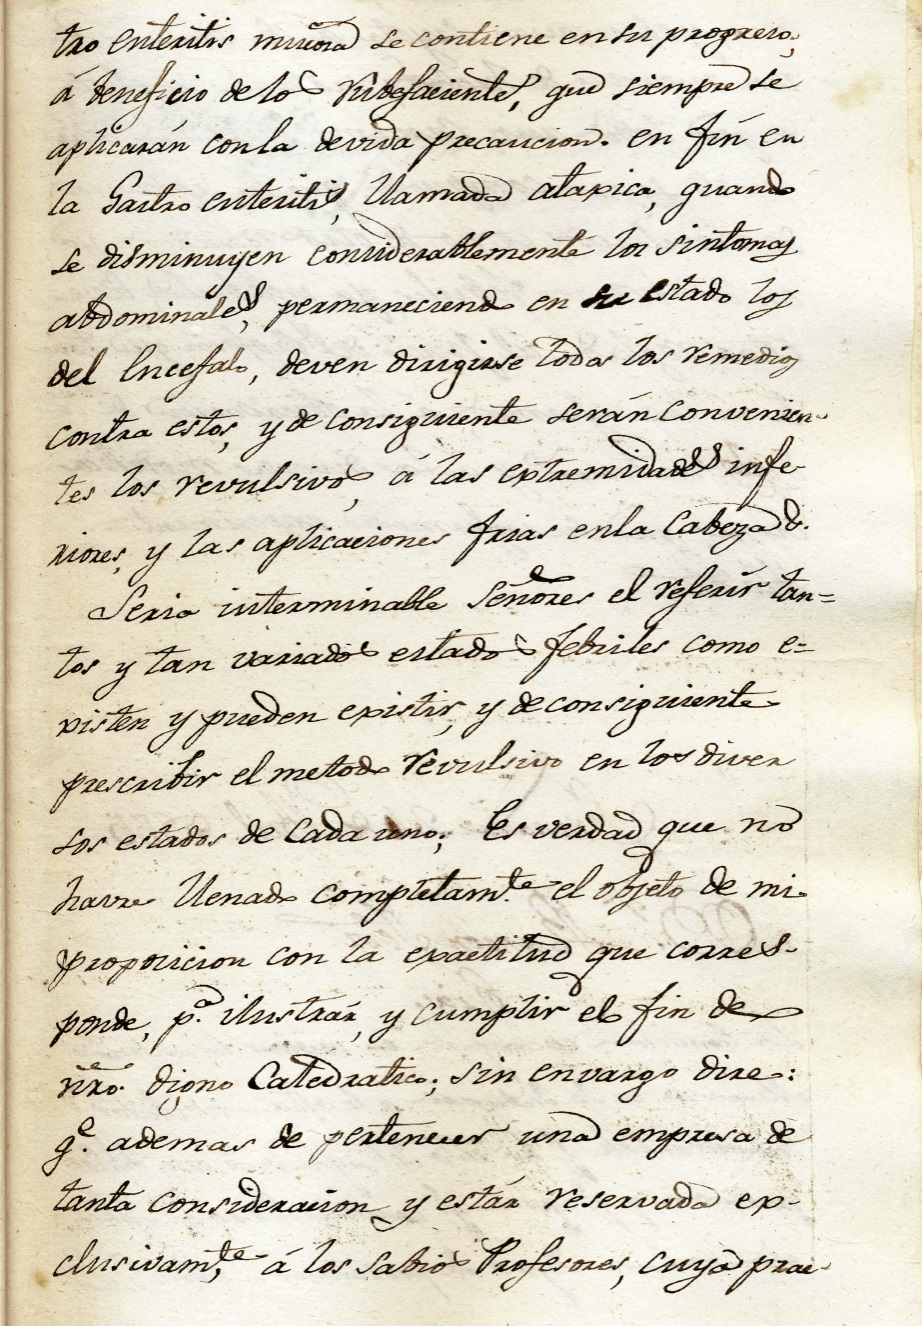 tro enteritis mucosa se contiene en su progreso,
á beneficio de los rubefacientes, que siempre se
aplicarán con la devida precaucion. en fin en
la Gastro enteritis, llamada ataxica, quando
se disminuyen considerablemente los sintomas
abdominales, permaneciendo en su estado los
del Encefalo, deven dirigirse todos los remedios
contra estos, y de consiguiente serán convenien-
tes los revulsivos, á las extremidades infe-
riores, y las aplicaciones frias en la Cabeza &.
Seria interminable Señores el referir tan=
tos y tan variados estados febriles como e=
xisten y pueden existir, y de consiguiente
prescribir el metodo revulsivo en los diver
sos estados de cada uno; Es verdad que no
havre llenado completam.te el objeto de mi
proposicion con la exactitud que corres-
ponde, p.a ilustrár, y cumplir el fin de
ñro. digno Catedratico; sin envargo dire:
q.e ademas de pertenecer una empresa de
tanta consideracion y estár reservada ex-
clusivam.te á los sabios Profesores, cuya prac-